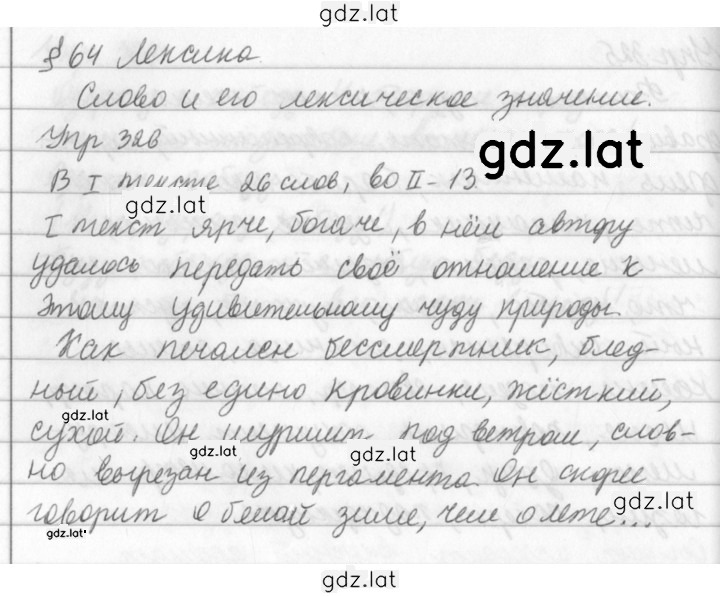 gdz.lat
§ 64 Лексика.
Слово и его лексическое значение.
Упр 326
gdz.lat
В I тексте 26 слов, во II - 13.
gdz.lat
I текст ярче, богаче, в нём автору
удалось передать своё отношение к
этому удивительному чуду природы.
Как печален бессмертник, блед-
ный, без едино кровинки, жёсткий,
gdz.lat
сухой. Он шуршит под ветром, слов-
gdz.lat
gdz.lat
но вырезан из пергамента. Он скорее
gdz.lat
говорит о белой зиме, чем о лете...
gdz.lat
gdz.lat